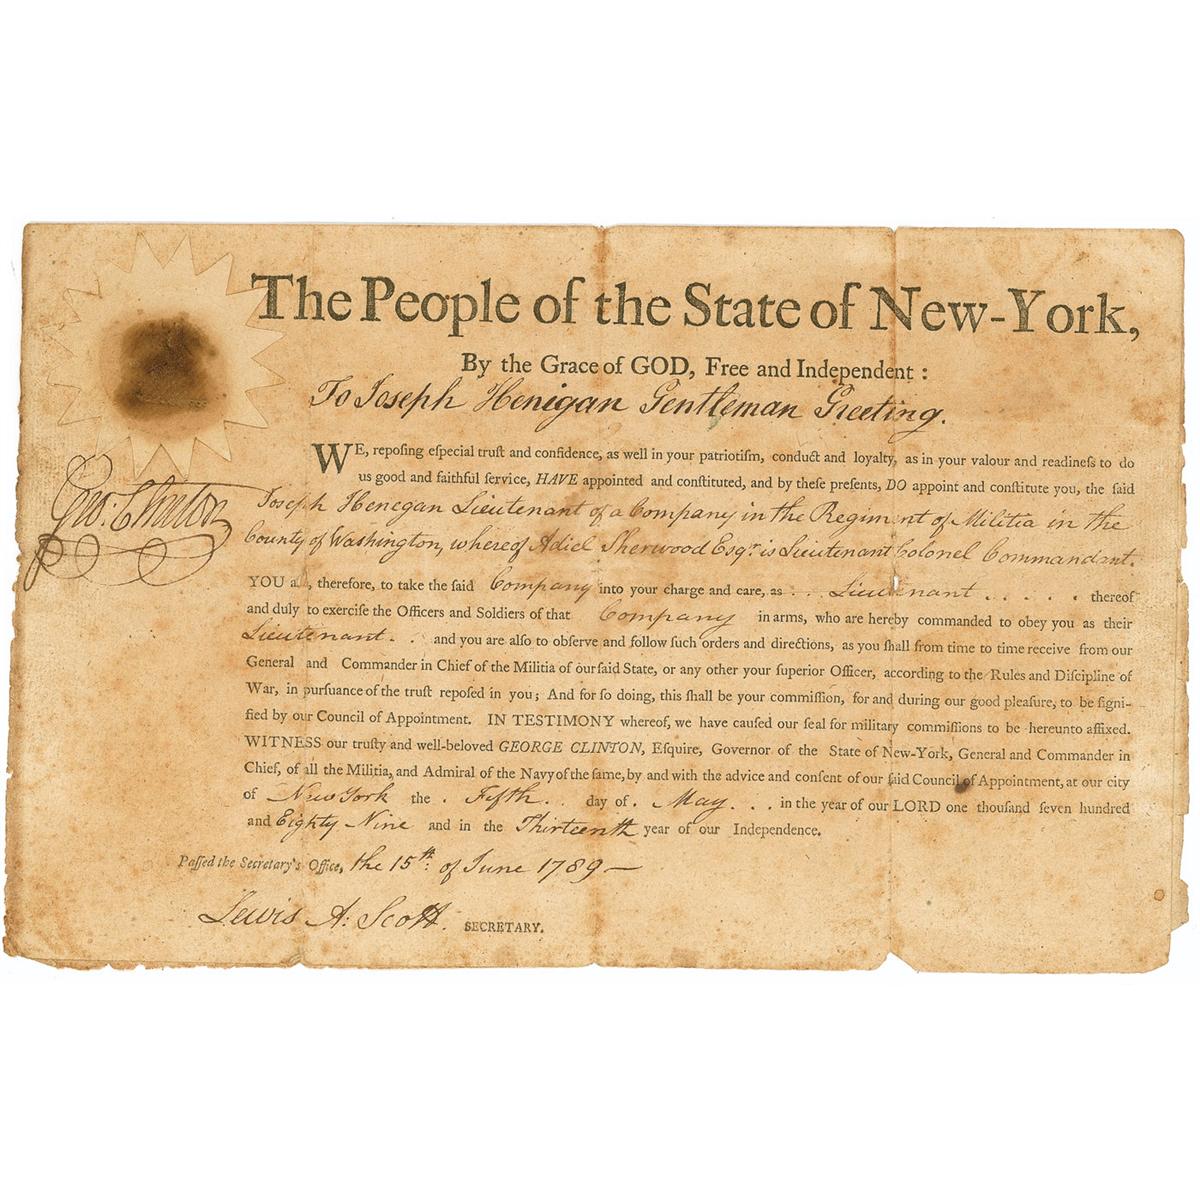 The People of the State of New-York,
By the Grace of GOD, Free and Independent:
To Joseph Henigan Gentleman Greeting.
WE, reposing eſpecial truſt and confidence, as well in your patriotiſm, conduct and loyalty, as in your valour and readineſs to do
us good and faithful ſervice, HAVE appointed and conſtituted, and by theſe preſents, DO appoint and conſtitute you, the ſaid
Geo: Clinton
Joseph Henegan Lieutenant of a Company in the Regiment of Militia in the
County of Washington, whereof Adiel Sherwood Esqr. is Lieutenant Colonel Commandant.
YOU a , therefore, to take the ſaid Company into your charge and care, as . . Lieutenant . . . . . thereof
and duly to exerciſe the Officers and Soldiers of that Company in arms, who are hereby commanded to obey you as their
Lieutenant . . and you are alſo to obſerve and follow ſuch orders and directions, as you ſhall from time to time receive from our
General and Commander in Chief of the Militia of our ſaid State, or any other your ſuperior Officer, according to the Rules and Diſcipline of
War, in purſuance of the truſt repoſed in you; And for ſo doing, this ſhall be your commiſſion, for and during our good pleaſure, to be ſigni-
fied by our Council of Appointment. IN TESTIMONY whereof, we have cauſed our ſeal for military commiſſions to be hereunto affixed.
WITNESS our truſty and well-beloved GEORGE CLINTON, Eſquire, Governor of the State of New-York, General and Commander in
Chief, of all the Militia, and Admiral of the Navy of the ſame, by and with the advice and conſent of our ſaid Council of Appointment, at our city
of New York the . Fifth . . day of . May . . . in the year of our LORD one thouſand ſeven hundred
and Eighty Nine and in the Thirteenth year of our Independence.
Paſſed the Secretary's Office, the 15th. of June 1789 —
Lewis A: Scott. SECRETARY.